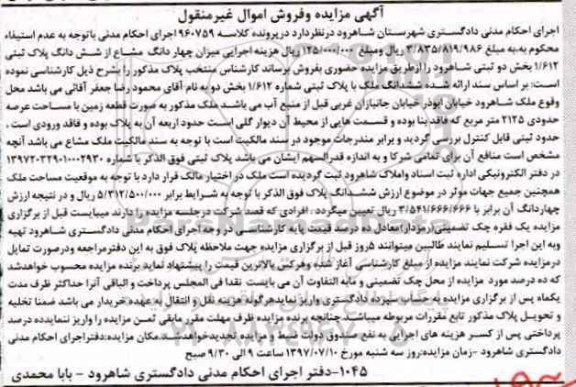 آگهی مزایده وفروش اموال غیرمنقول
اجرای احکام مدنی دادگستری شهرستان شاهرود درنظردارد درپرونده کلاسه ۹۶۰۷۵۹ اجرای احکام مدنی باتوجه به عدم استیفاء
محکوم به،به مبلغ ۳/۸۳۵/۸۱۹/۹۸۶ ریال ومبلغ ۱۲۵/۰۰۰/۰۰۰ ریال هزینه اجرایی میزان چهار دانگ مشاع از شش دانگ پلاک ثبتی
۱/۶۱۲ بخش دو ثبتی شاهرود را ازطریق مزایده حضوری بفروش برساند کارشناس منتخب پلاک مذکور را بشرح ذیل کارشناسی نموده
است: بر اساس سند ارائه شده ششدانگ ملک با پلاک ثبتی شماره ۱/۶۱۲ بخش دو به نام آقای محمود رضا جعفر آقائی می باشد محل
وقوع ملک شاهرود خیابان ابوذر خیابان جانبازان غربی قبل از منبع آب می باشد ملک مذکور به صورت قطعه زمین با مساحت عرصه
حدودی ۲۱۲۵ متر مربع که فاقد بنا بوده و قسمت هایی از محیط آن دیوار گلی است حدود اربعه آن به پلاک بوده و فاقد ورودی است .
حدود ثبتی قابل کنترل بررسی گردید و برابر مندرجات موجود در سند مالکیت است با توجه به سند مالکیت ملک مشاع می باشد آنچه
مشخص است منافع آن برای تمامی شرکا و به اندازه قدرالسهم ایشان می باشد پلاک ثبتی فوق الذکر با شماره ۱۳۹۷۲۰۳۲۹۰۱۰۰۰۲۹۳۰
در دفتر الکترونیکی اداره ثبت اسناد واملاک شاهرود ثبت گردیده است ملک در اختیار مالک قرار دارد با توجه به موقعیت مساحت ملک
همچنین جمیع جهات موثر در موضوع ارزش ششدانگ پلاک فوق الذکر با توجه به شرایط برابر ۵/۳۱۲/۵۰۰/۰۰۰ ریال و در نتیجه ارزش
چهاردانگ آن برابر با ۳/۵۴۱/۶۶۶/۶۶۶ ریال تعیین میگردد . افرادی که قصد شرکت درجلسه مزایده را دارند میبایست قبل از برگزاری
مزایده یک فقره چک تضمینی(رمزدار)معادل ده درصد قیمت پایه کارشناسی در وجه اجرای احکام مدنی دادگستری شاهرود تهیه
وبه این اجرا تسلیم نمایند طالبین میتوانند ۵روز قبل از برگزاری مزایده جهت ملاحظه پلاک فوق به این دفترمراجعه ودرصورت تمایل
درمزایده شرکت نمایند مزایده از مبلغ کارشناسی آغاز شده وهرکس بالاترین قیمت را پیشنهاد نماید برنده مزایده محسوب خواهدشد
که ده درصد مورد مزایده از محل چک تضمینی و مابه التفاوت آن می بایست نقدا فی المجلس پرداخت و الباقی آنرا حداکثر ظرف مدت
یکماه پس از برگزاری مزایده به حساب سپرده دادگستری واریز نمایدهرگونه هزینه نقل و انتقال به عهده خریدار می باشد ضمنا تخلیه
و تحویل پلاک مذکور تابع مقررات مربوطه میباشدچنانچه برنده مزایده ظرف مهلت مقرر مابقی ثمن مزایده را واریز ننمایدده درصد
پرداختی پس از کسر هزینه های اجرایی به نفع صندوق دولت ضبط و مزایده تجدیدخواهدشد.مکان مزایده:دفتراجرای احکام مدنی
دادگستری شاهرود -زمان مزایده:روز سه شنبه مورخ ۱۳۹۷/۰۷/۱۰ ساعت ۹ الی ۹/۳۰ صبح
۱۰۴۵-دفتر اجرای احکام مدنی دادگستری شاهرود - بابا محمدی